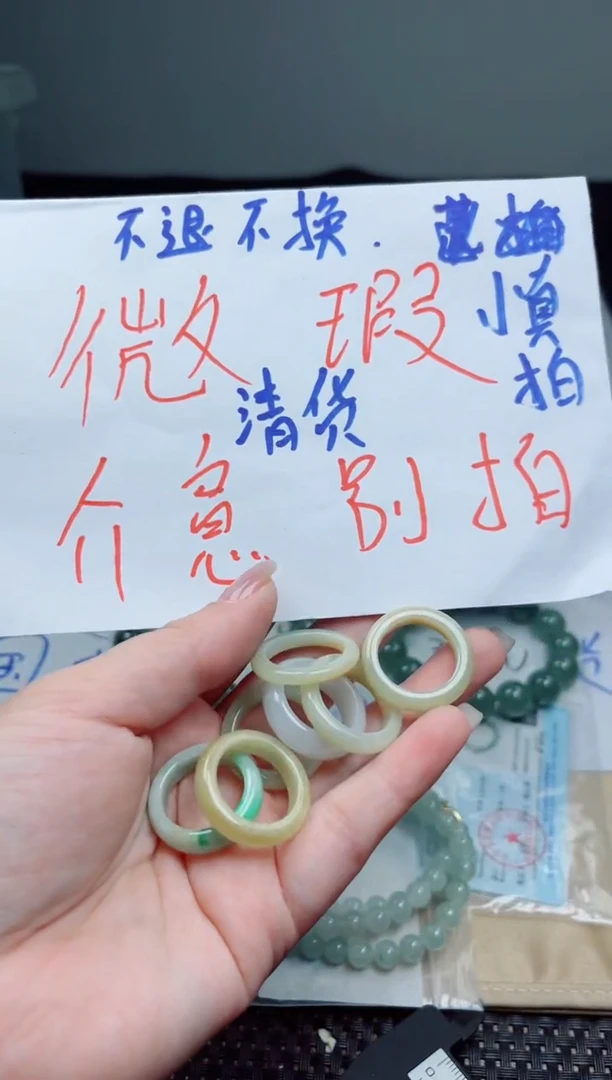 不退不换.
微瑕
慎
拍
清货
介急别拍